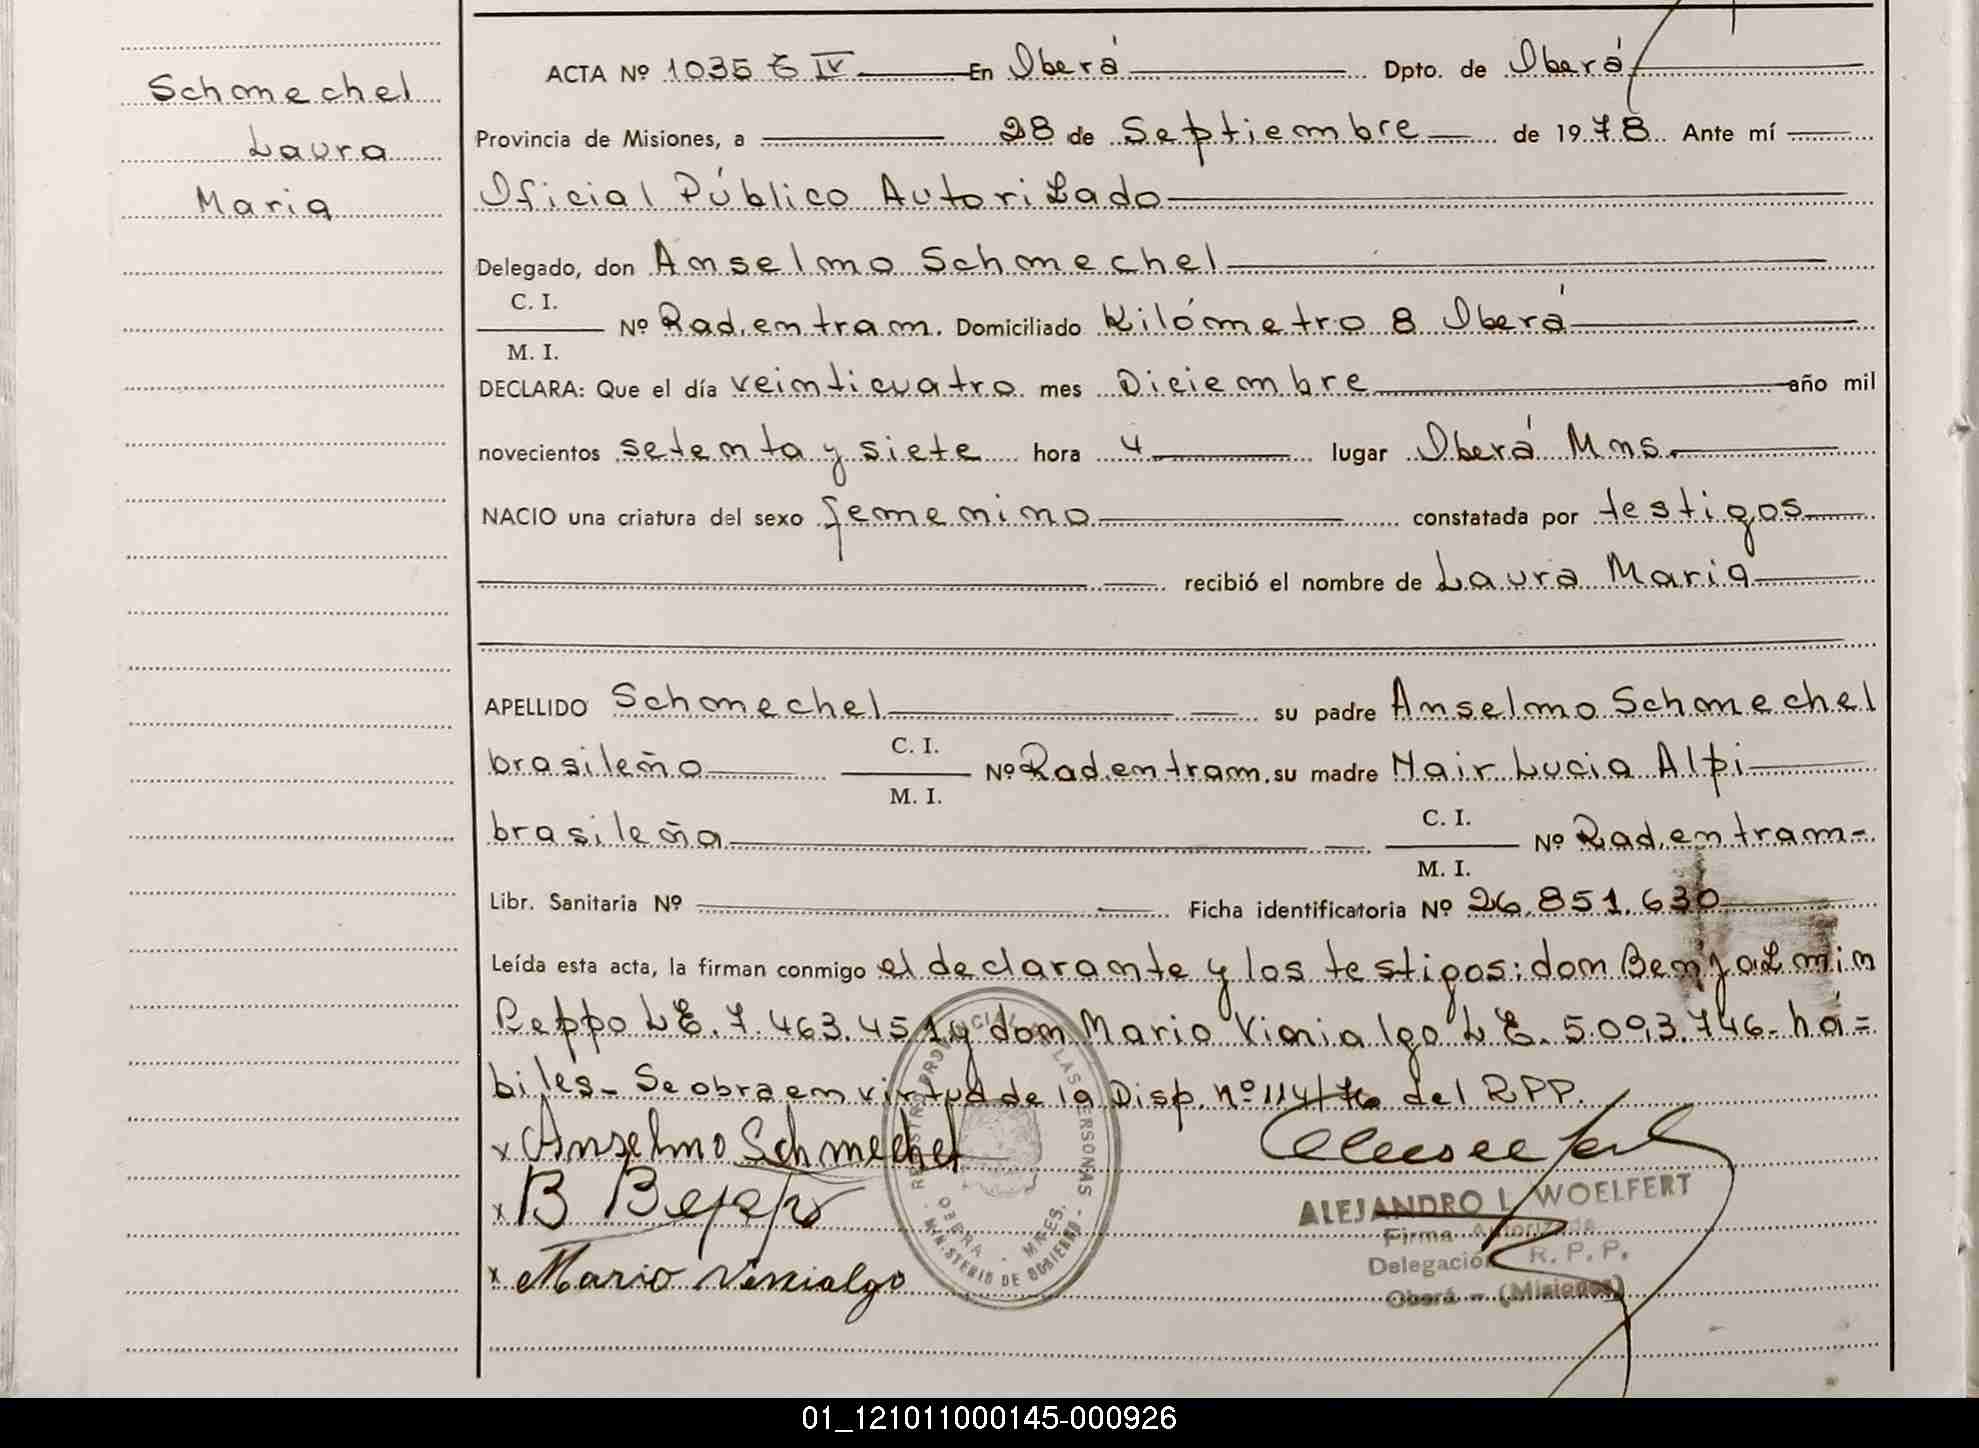 Schmechel
Laura
Maria
ACTA Nº 1035 T IV En Oberá Dpto. de Oberá
Provincia de Misiones, a 28 de Septiembre de 1978 Ante mí
Oficial Público Autorizado
Delegado, don Anselmo Schmechel
C. I.
M. I.
Nº Rad. en tram. Domiciliado Kilómetro 8 Oberá
DECLARA: Que el día veinticuatro mes Diciembre año mil
novecientos setenta y siete hora 4 lugar Oberá Mns.
NACIO una criatura del sexo femenino constatada por testigos
recibió el nombre de Laura Maria
APELLIDO Schmechel su padre Anselmo Schmechel
brasileño C. I. M. I. Nº Rad. en tram. su madre Nair Lucia Alpi
brasileña C. I. M. I. Nº Rad. en tram-
Libr. Sanitaria Nº Ficha identificatoria Nº 26.851.630
Leída esta acta, la firman conmigo el declarante y los testigos: don Benjamin
Beppo LE. 7.463.451 y don Mario Vinialgo LE. 5.093.746- há=
biles- Se obra en virtud de la Disp. nº 114/76 del RPP.
x Anselmo Schmechel
x B Beppo
x Mario Vinialgo
REGISTRO PROVINCIAL DE LAS PERSONAS
OBERA - MNES.
- MINISTERIO DE GOBIERNO -
ALEJANDRO L. WOELFERT
Firma Autorizada
Delegación R. P. P.
Oberá - (Misiones)
01_121011000145-000926